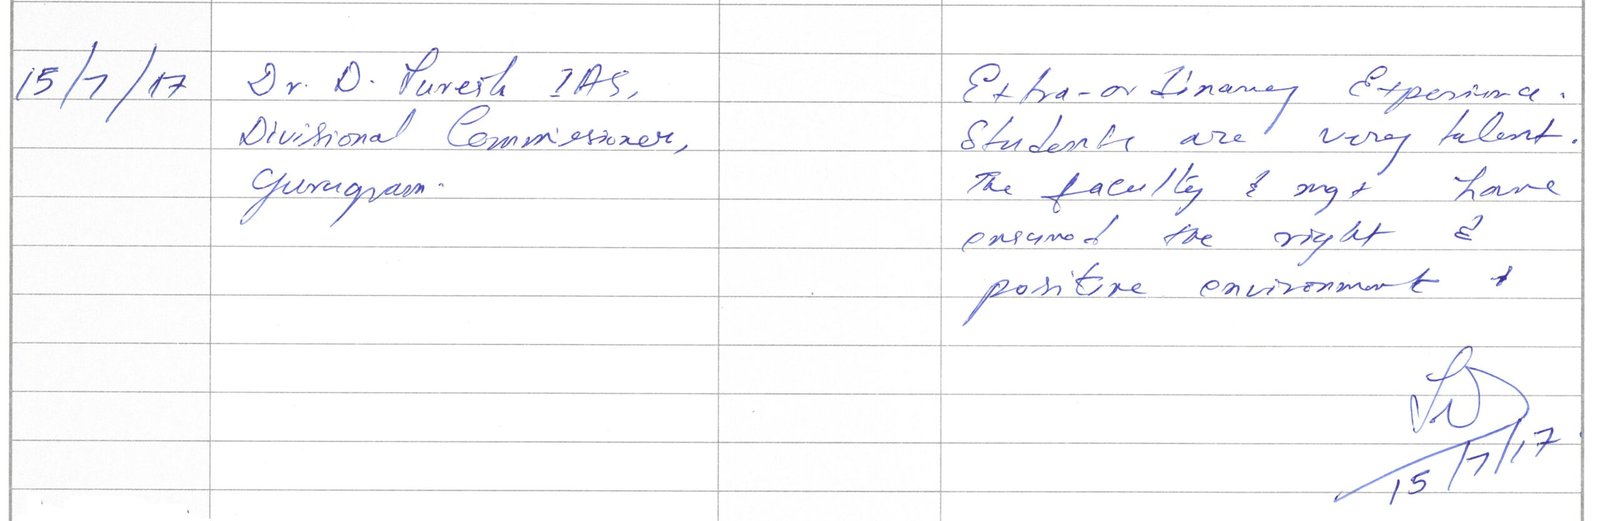 15/7/17
Dr. D. Suresh IAS,
Divisional Commissioner,
Gurugram.
Extra-ordinary Experience.
Students are very talent.
The faculty & mgt have
ensured the right &
positive environment
15/7/17